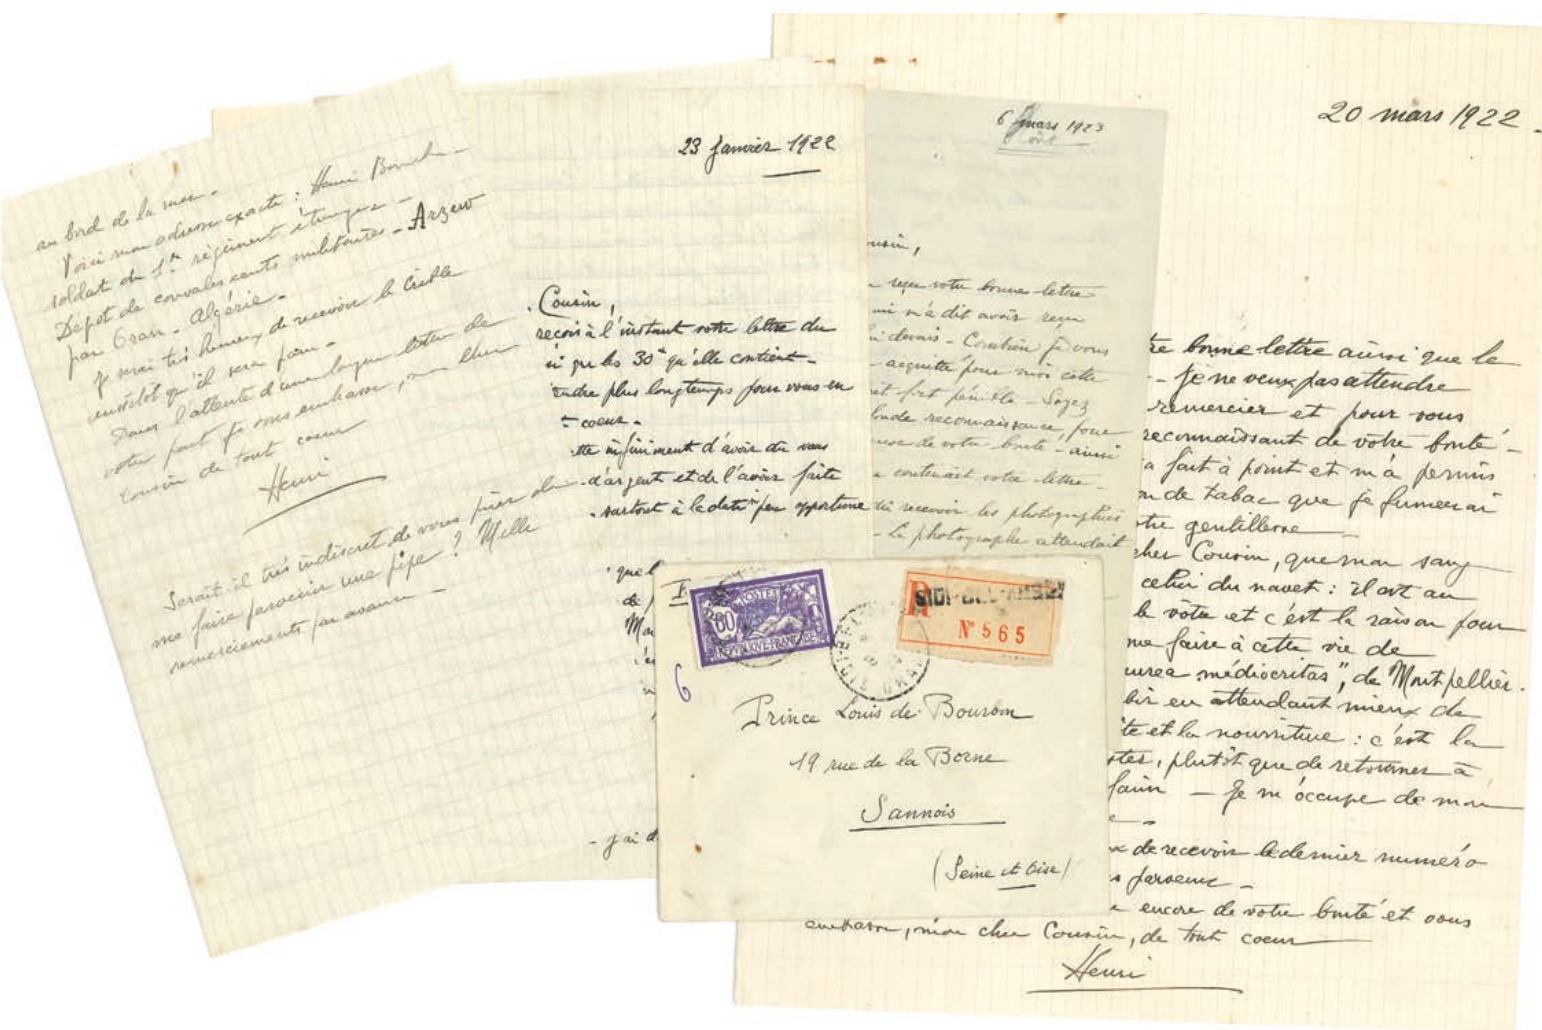 au bord de la mer.
Voici mon adresse exacte : Henri
soldat du 1er régiment étranger -
Dépot de convalescents militaires - Arzew
par Oran - Algérie -
Je serai très heureux de recevoir le Crible
aussitôt qu'il sera paru -
Dans l'attente d'une longue lettre de
votre part je vous embrasse, mon cher
Cousin de tout coeur
Henri
Serait-il très indiscret de vous prier de
me faire parvenir une pipe ? Mille
remerciements par avance -
23 janvier 1922
Cousin,
reçois à l'instant votre lettre du
que les 30 qu'elle contient -
endre plus longtemps pour vous en
coeur -
tte infiniment d'avoir du vous
d'argent et de l'avoir faite
surtout à la date peu opportune
que l
de
Ma
- j'ai d
6 mars 1923
août
ousin,
reçu votre bonne lettre
ui m'a dit avoir reçu
devais - Combien je vous
acquitté pour moi cette
it fort pénible - Soyez
onde reconnaissance pour
euve de votre bonté - ainsi
contenait votre lettre -
recevoir les photographies
- Le photographe attendait
20 mars 1922 -
tre bonne lettre ainsi que le
- Je ne veux pas attendre
remercier et pour vous
reconnaissant de votre bonté -
a fait à point et m'a permis
on de tabac que je fumerai
otre gentillesse
cher Cousin, que mon sang
celui du navet : il est au
le votre et c'est la raison pour
me faire à cette vie de
aurea médiocritas", de Montpellier.
bir en attendant mieux de
te et la nourriture : c'est la
stes, plutôt que de retourner à
faim - Je m'occupe de mon
e -
x de recevoir le dernier numéro
s parvenu -
encore de votre bonté et vous
embrasse, mon cher Cousin, de tout coeur
Henri
POSTES
60
REPUBLIQUE FRANÇAISE
R
SIDI-BEL-ABBÈS
N° 565
6
Prince Louis de Bourbon
19 rue de la Borne
Sannois
(Seine et Oise)